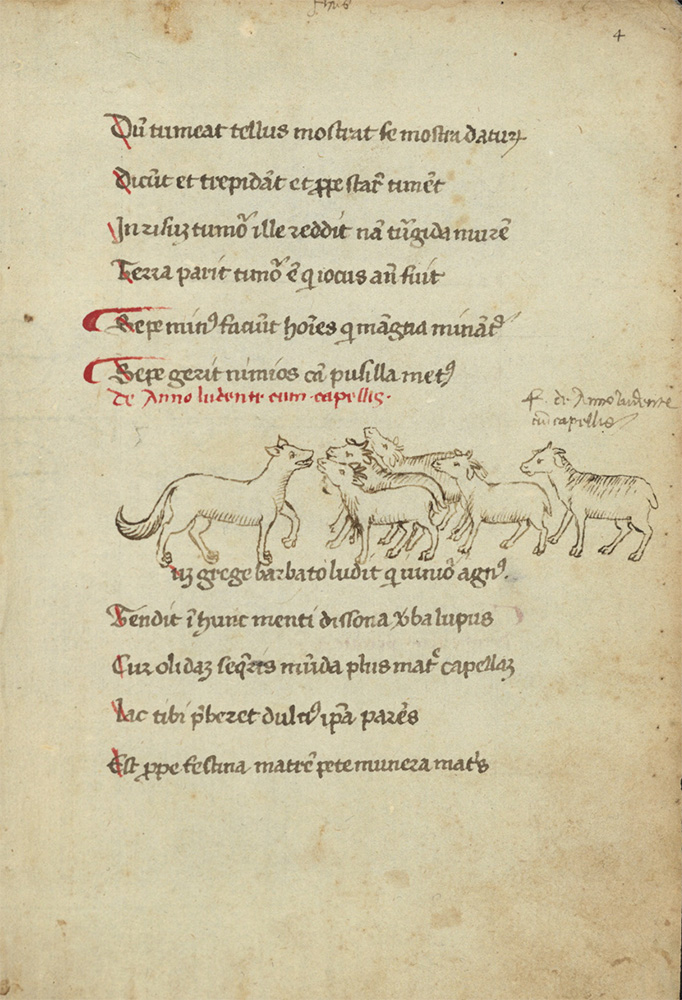 4
Dū tumeat tellus mostrat se mostra daturꝝ
Dicūt et trepidāt et ꝓpe star̄ timēt
In risuꝫ tumor̄ ille reddit nā tur̄gida murē
Terra parit timor̄ ē qi iocus an̄ fuit
Sepe minꝰ faciūt hoīes qi māgna minātꝰ
Sepe gerit nimios cā pusilla metꝰ
de Anno ludente cum capellis.
de Anno ludente
cū capellis
uꝫ grege barbato ludit qi iunior̄ agnꝰ.
Tendit ī hunc menti dissona v̄ba lupus
Cur olidaꝫ seqris mūda plus matr̄ capellaꝫ
lac tibi p̄beret dulciꝰ ipā parēs
Est ꝓpe festina matrē pete munera matis